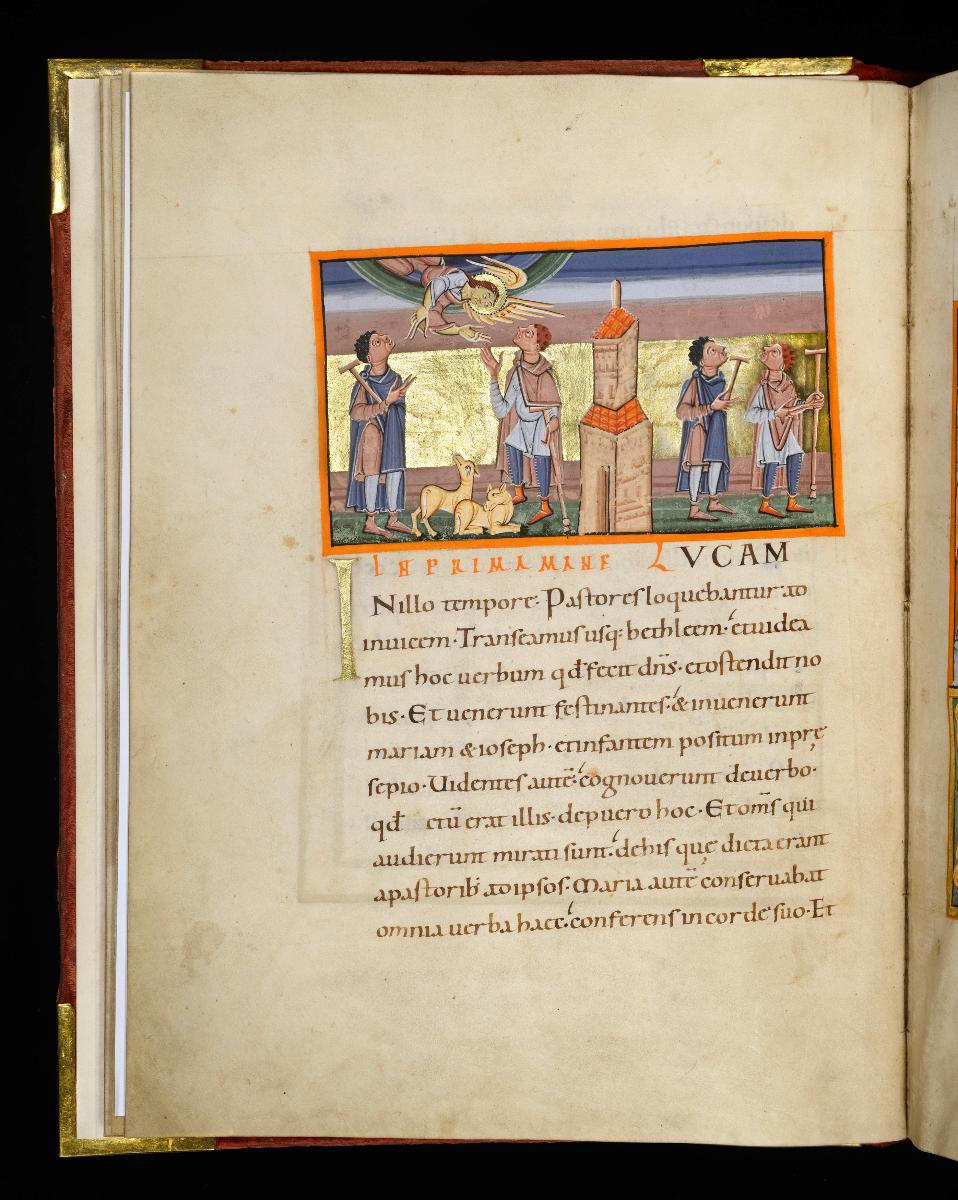 IN PRIMA MANE LVCAM
INillo tempore· Pastores loquebantur ad
inuicem· Transeamus usq: bethleem· etuidea
mus hoc uerbum qđ fecit dn̄s· etostendit no
bis· Et uenerunt festinantes· & inuenerunt
mariam & ioseph· etinfantem positum inprę
sepio· Uidentes autē· cognouerunt deuerbo·
qđ ctū erat illis· depuero hoc· Et om̄s qui
audierunt mirati sunt· dehis quę dicta erant
apastorib· adipsos· Maria autē conseruabat
omnia uerba haec· conferens incorde suo· Et